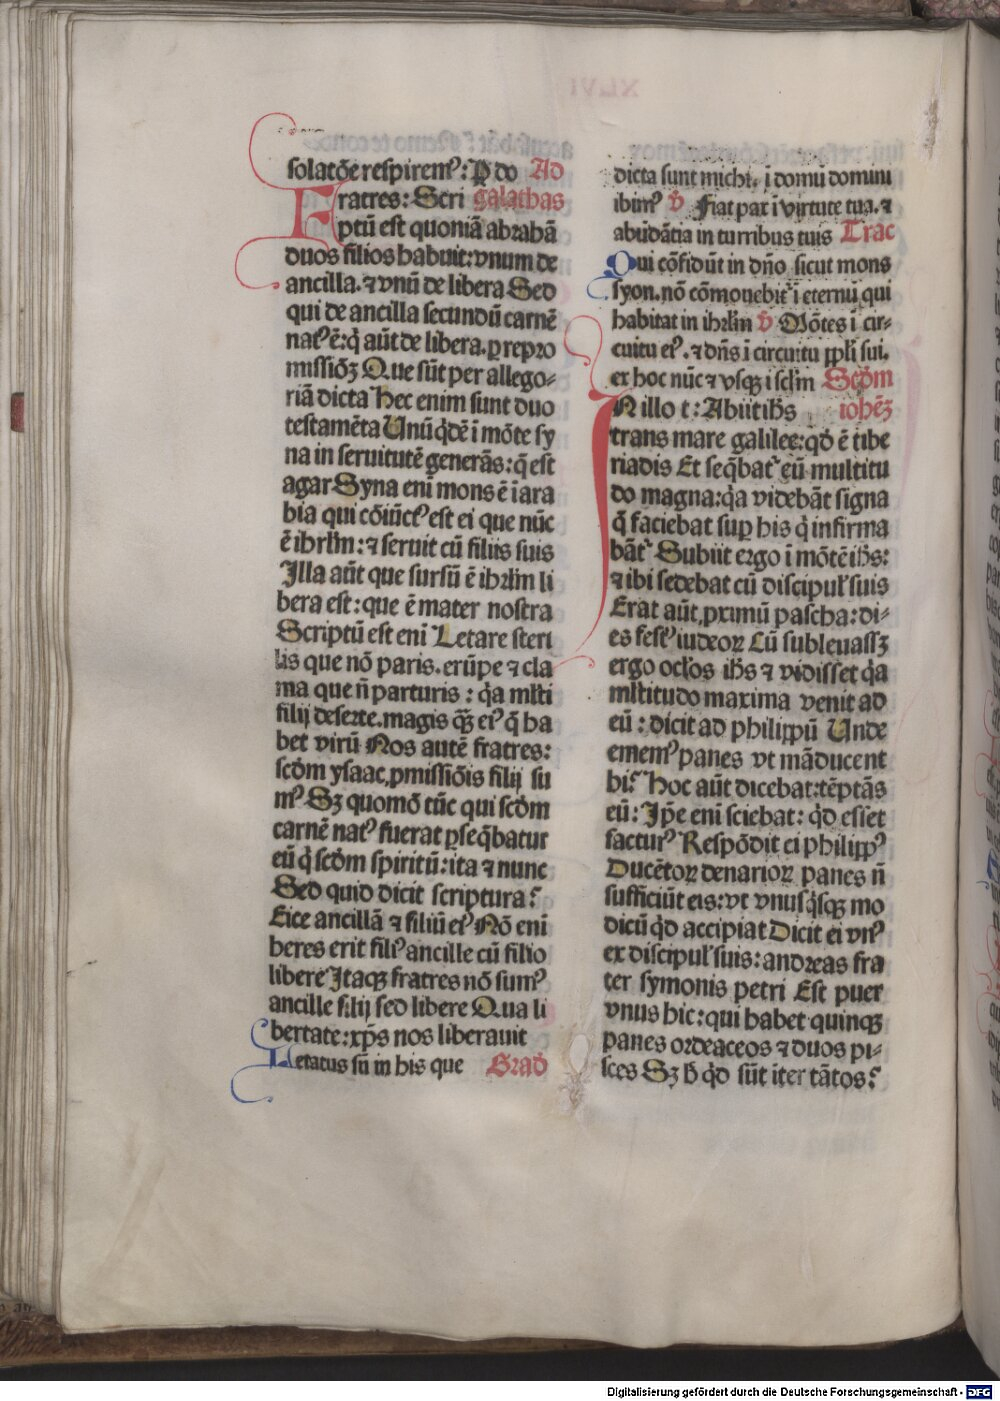 solatōe respirem⁹: P do Ad
Fratres: Scri galathas
ptū est quoniā abrahā
duos filios habuit: vnum de
ancilla. ⁊ vnū de libera Sed
qui de ancilla secundū carnē
nat⁹ ē: q̄ aūt de libera. ꝑ repro
missiōꝫ Que sūt per allego-
riā dicta Hec enim sunt duo
testamēta Unū qdē ī mōte sy
na in seruitutē generās: q̄ est
agar Syna eni mons ē ī ara
bia qui cōiūct⁹ est ei que nūc
ē ihrlm: ⁊ seruit cū filiis suis
Illa aūt que sursū ē ihrlm li
bera est: que ē mater nostra
Scriptū est eni Letare steri
lis que nō paris. erūpe ⁊ cla
ma que n̄ parturis: q̄a mlti
filij deserte. magis qꝫ ei⁹ q̄ ha
bet virū Nos autē fratres:
scdm ysaac ꝓmissiōis filij su
m⁹ Sꝫ quomō tūc qui scdm
carnē nat⁹ fuerat ꝑseq̄batur
eū q̇ scdm spiritū: ita ⁊ nunc
Sed quid dicit scriptura?
Eice ancillā ⁊ filiū ei⁹ Nō eni
heres erit fili⁹ ancille cū filio
libere Itaqꝫ fratres nō sum⁹
ancille filij sed libere Qua li
bertate: xp̄s nos liberauit
Letatus sū in his que Grad
dicta sunt michi. ī domū domini
ibim⁹ v̄ Fiat pax ī virtute tua. ⁊
abūdātia in turribus tuis Trac
Qui cōfidūt in dn̄o sicut mons
syon. nō cōmouebit̃ ī eternū qui
habitat in ihrlm v̄ Mōtes ī cir-
cuitu ei⁹. ⁊ dn̄s ī circuitu ppl̄i sui.
ex hoc nūc ⁊ vsqꝫ ī sclm Scdm
In illo t: Abiit ihs iohēꝫ
trans mare galilee: qd ē tibe
riadis Et seq̄bat̃ eū multitu
do magna: q̄a videbāt signa
q̄ faciebat suꝑ his q̇ infirma
bāt̃ Subiit ergo ī mōtē ihs:
⁊ ibi sedebat cū discipul̃ suis
Erat aūt ꝓximū pascha: di-
es fest⁹ iudeoꝝ Cū subleuassꝫ
ergo ocl̄os ihs ⁊ vidisset q̄a
mltitudo maxima venit ad
eū: dicit ad philippū Unde
emem⁹ panes vt māducent
hi? Hoc aūt dicebat: tēptās
eū: Ip̄e eni sciebat: qd esset
factur⁹ Respōdit ei philipp⁹
Ducētoꝝ denarioꝝ panes n̄
sufficiūt eis: vt vnusq̇sqꝫ mo
dicū qd accipiat Dicit ei vn⁹
ex discipul̃ suis: andreas fra
ter symonis petri Est puer
vnus hic: qui habet quinqꝫ
panes ordeaceos ⁊ duos pi-
sces Sꝫ h̄ qd sūt iter tātos?
Digitalisierung gefördert durch die Deutsche Forschungsgemeinschaft - DFG